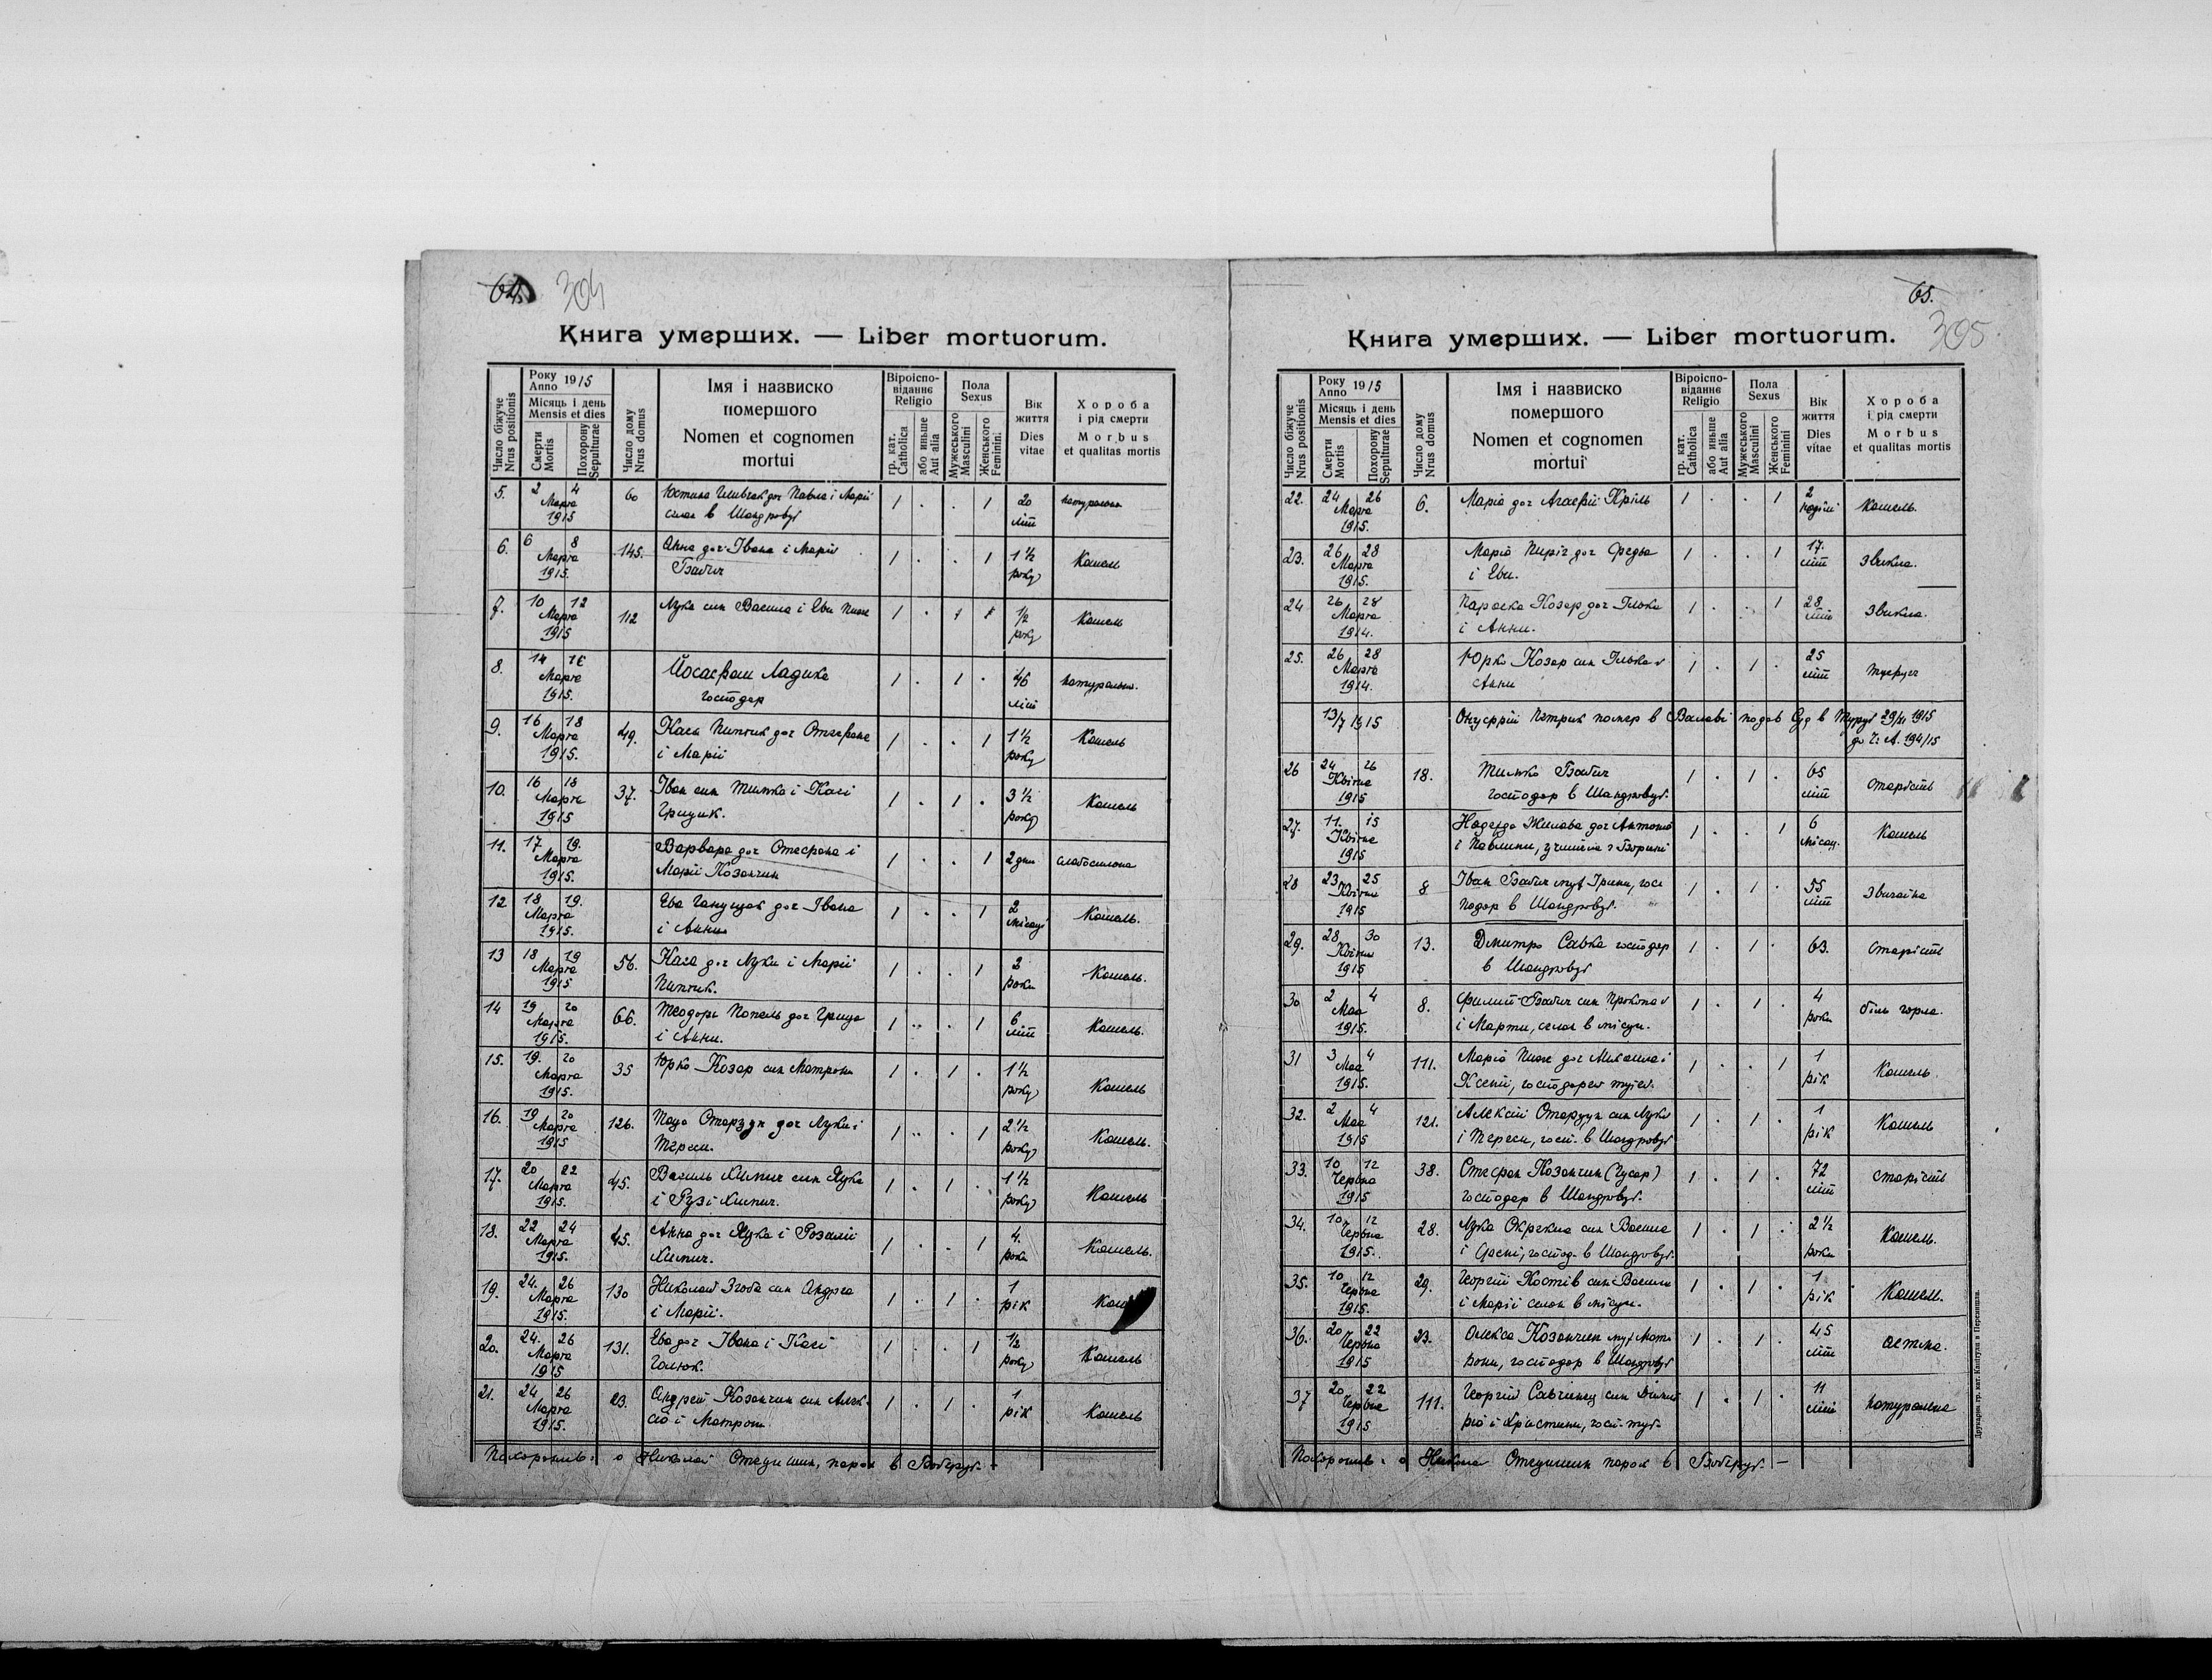 64. 304
Книга умерших. — Liber mortuorum.
Число біжуче Nrus positionis
Року Anno 1915
Місяць і день Mensis et dies
Смерти Mortis
Похорону Sepulturae
Число дому Nrus domus
Імя і назвиско
помершого
Nomen et cognomen
mortui
Віроіспо-
віданнє
Religio
гр. кат. Catholica
або иньше Aut alia
Пола
Sexus
Мужеського Masculini
Женського Feminini
Вік
життя
Dies
vitae
Хороба
і рід смерти
Morbus
et qualitas mortis
5. 2 4 Марта 1915 60 доч Павла і Марії 1 . . 1 20 літ
6. 6 8 Марта 1915. 145. Анна доч Івана і Марії 1 . . 1 1½ року Кашель
Бабич
7. 10 12 Марта 1915 112 Лука син Василя і Еви 1 . 1 ½ року Кашель
8. 14 16 Марта 1915. Йосафат Ладика 1 . 1 . 46 літ натуральна.
господар
9. 16 18 Марта 1915. 49. Кася Пиптик доч Стефана 1 . . 1 1½ року Кашель
і Марії
10. 16 18 Марта 1915 37. Іван син Тимка і Касі 1 . 1 . 3½ року Кашель
Грицик.
11. 17 19. Марта 1915. Варвара доч Стефана і 1 . . 1 2 дни
Марії Козанчин
12 18 19. Марта 1915. Ева доч Івана 1 . . 1 2 місяці Кашель.
і Анни
13 18 19 Марта 1915 56. Кася доч Луки і Марії 1 . . 1 2 роки Кашель.
Пиптик.
14 19 20 Марта 1915. 66. Теодора Попель доч Гриця 1 . . 1 6 літ Кашель.
і Анни.
15. 19. 20 Марта 1915. 35 Юрко Козар син Матрони 1 . 1 . 1½ року Кашель
16. 19 20 Марта 1915 126. доч Луки і 1 . . 1 2½ року Кашель.
Тереси.
17. 20 22 Марта 1915. 45. Василь син Яцка 1 . 1 . 1½ року Кашель
і Рузі
18. 22 24 Марта 1915. 45. Анна доч Яцка і Розалії 1 . . 1 4. роки Кашель.
19. 24. 26 Марта 1915. 130 Николай Згоба син Андрея 1 . 1 . 1 рік
і Марії.
20. 24. 26 Марта 1915 131. Ева доч Івана і Касі 1 . . 1 ½ року Кашель
Галюк.
21. 24 26 Марта 1915. 23. Андрей Козанчин син Алек- 1 . 1 . 1 рік Кашель
сія і Матрони
Похоронив: о Николай парох в
65. 305
Книга умерших. — Liber mortuorum.
Число біжуче Nrus positionis
Року Anno 1915
Місяць і день Mensis et dies
Смерти Mortis
Похорону Sepulturae
Число дому Nrus domus
Імя і назвиско
помершого
Nomen et cognomen
mortui
Віроіспо-
віданнє
Religio
гр. кат. Catholica
або иньше Aut alia
Пола
Sexus
Мужеського Masculini
Женського Feminini
Вік
життя
Dies
vitae
Хороба
і рід смерти
Morbus
et qualitas mortis
22. 24 26 Марта 1915. 6. Марія доч Агафії Кріль 1 . . 1 2 неділі Кашель.
23. 26 28 Марта 1915. Марія Пиріг доч Федья 1 . . 1 17. літ Звикла.
і Еви.
24 26 28 Марта 1914. Параска Козар доч Илька 1 . . 1 28 літ Звикла.
і Анни.
25. 26 28 Марта 1914. Юрко Козар син Илька 1 . 1 . 25 літ
Анни
13/7 1915 Онуфрій Петрик помер в подав Суд в 29/XI 1915
до Ч: А. 194/15
26 24 26 Квітня 1915 18. Тимко Бабич 1 . 1 . 65 літ старість
господар в Шандровці.
27. 11. 15 Квітня 1915 доч Антонія 1 . . 1 6 місяц. Кашель
і Павлини,
28 23 25 Квітня 1915 8 Іван Бабич муж Ірини, гос- 1 . 1 . 55 літ Звичайна
подар в Шандровці.
29. 28. 30 Квітня 1915 13. Дмитро Савка господар 1 . 1 . 63. старість
в Шандровці
30 2 4 Мая 1915. 8. Филип Бабич син Прокопа 1 . 1 . 4 роки біль горла.
і Марти, селян в місци.
31 3 4 Мая 1915. 111. Марія доч Михайла і 1 . . 1 1 рік Кашель.
Ксенії,
32. 2 4 Мая 1915 121. Алексій син Луки 1 . 1 . 1 рік Кашель
і Тереси, госп. в Шандровці
33. 10 12 Червня 1915 38. Стефан Козанчин (Гусар) 1 . 1 . 72 літ старість
господар в Шандровці.
34. 10 12 Червня 1915. 28. Лука син Василя 1 . 1 . 2½ роки Кашель.
і господ. в Шандровці.
35. 10 12 Червня 1915. 29. Георгій Костів син Василя 1 . 1 . 1 рік Кашель.
і Марії селян в місци.
36. 20 22 Червня 1915 23. Олекса Козанчин муж Мат- 1 . 1 . 45 літ астма.
рони, господар в Шандровці
37 20 22 Червня 1915 111. Георгій син Дмит- 1 . 1 . 11 літ натуральна
рія і Христини,
Похоронив: о парох в
Друкарня гр. кат. Капітули в Перемишли.